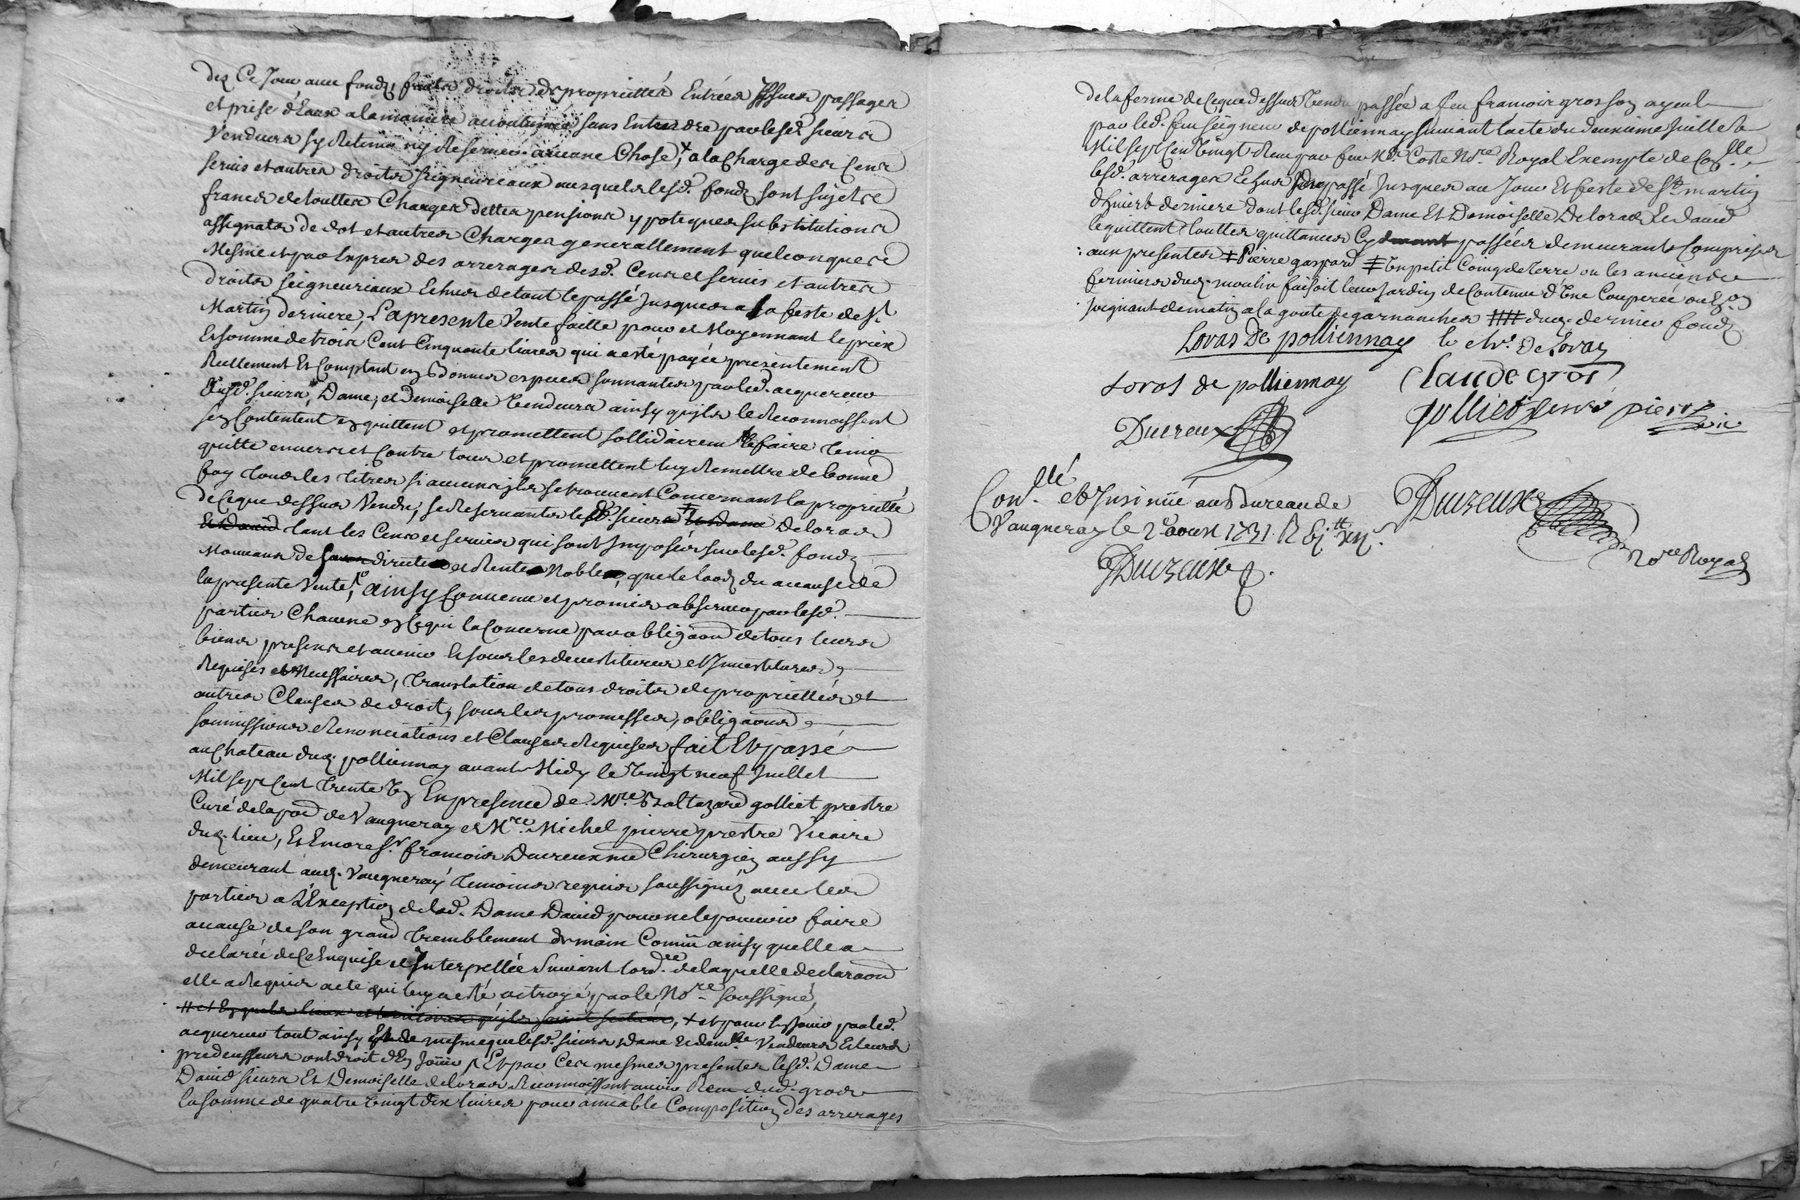 dez Ce Jour aux fondz, fruits droits et proprietter Entrées Issues passages
et prise d'Eaux a la maniere accoutumée sans Entendre par lesd. sieurs
Vendeurs sy Retenir ny Reserver aucune Chose, + a la Charge des Cens
servis et autres droits seigneuriaux ausquels lesd. fondz sont sujets
francs de toutes Charges dettes pensions ypoteques substitutions
assignats de dot et autres Charges generallement quelconques
Mesme et par Expres des arrerages desd. Cens et servis et autres
droits seigneuriaux Echeus de tout le passé Jusques a la feste de St
Martin derniere, La presente Vente faitte pour et Moyennant le prix
Et somme de trois Cent Cinquante livres qui a esté payée presentement
Reellement Et Comptant en bonnes especes sonnantes par led. acquereur
Ausd. sieurs, Dame, et Demoiselle Vendeurs ainsy qu'ils le Reconnoissent
sen Contentent en quittent et promettent sollidairem le faire tenir
quitte envers et Contre tous et promettent luy Remettre de bonne
foy tous les titres si aucuns ils se trouvent Concernant la proprietté
de Ceque dessus Vendu, se Reservants lesd. sieurs Et Dame Deloras
Et David tant les Cens et servis qui sont Imposés sur lesd. fondz
Mouvants de leur directe et Rente Noble, que le lods du a cause de
la presente Vente, ainsy Convenu et promis observer par lesd.
parties Chacune en Ce qui la Concerne par obligaon de tous leurs
biens presents et avenir Et sous les devestitures et Investitures
Requises et Necessaires, translation de tous droits de proprietter et
autres Clauses de droit, sous les promesses, obligaons,
soumissions Renonciations et Clauses Requises fait Et passé
au Chateau dud. pollionnay avant Midy le Vingt neuf Juillet
Mil sept Cent trente Un En presence de Mre Baltazard golliet prestre
Curé de la par de Vaugneray et Mre Michel pierre prestre Vicaire
dud. lieu, Et Encore Sr françois Ducreux me Chirurgien aussy
demeurant aud. Vaugneray temoins requis soussignéz avec les
parties a l'Exception de lad. Dame David pour ne le pouvoir faire
acause de son grand tremblement de main Comm ainsy quelle a
declaré de Ce Enquise et Interpellée suivant lord.ce de laquelle declaraon
elle a Requis acte qui luy a esté octroyé, par le Nore soussigné,
+ et pour En Jouir par led.
acquereur tout ainsy Et de mesme que lesd. sieurs dame Et dem.lle Vendeurs Et leurs
predecesseurs ont droit d'En Jouir Et par Ces mesmes presentes lesd. Dame
David sieurs Et Demoiselle deloras Reconnoissent avoir Receu dud. gros
la somme de quatre Vingt dix livres pour amiable Composition des arrerages
de la ferme de Ceque dessus Vendu passée a feu françois gros son ayeul
par led. feu seigneur de pollionnay suivant l'acte du deuxieme Juillet
Mil sept Cen Vingt deux par feu Me Coste Nore Royal Exempte de
lesd. arrerages Echeus du passé Jusques au Jour Et feste de St martin
d'hiver derniere dont lesd. sieurs Dame Et Demoiselle Deloras Et david
le quittent toutes quittances Cy devant passées demeurants Comprises
aux presentes ‡ Pierre gaspard ‡ Un petit Coing de terre ou les anciens
fermiers dud. moulin faisoit leur Jardin de Contenue d'Une Couperée ou En.on
joignant de matin a la goutte de garnanches ‡‡ dud. dernier fondz
Loras De pollionnay le chr. de Loras
Loras de pollionnay Claude gros
Ducreux golliet curé pierre vic
Con.llé et Insinué au Bureau de
Vaugneray le 2e aoust 1731 R
Ducreux
Ducreux
Nore Royal